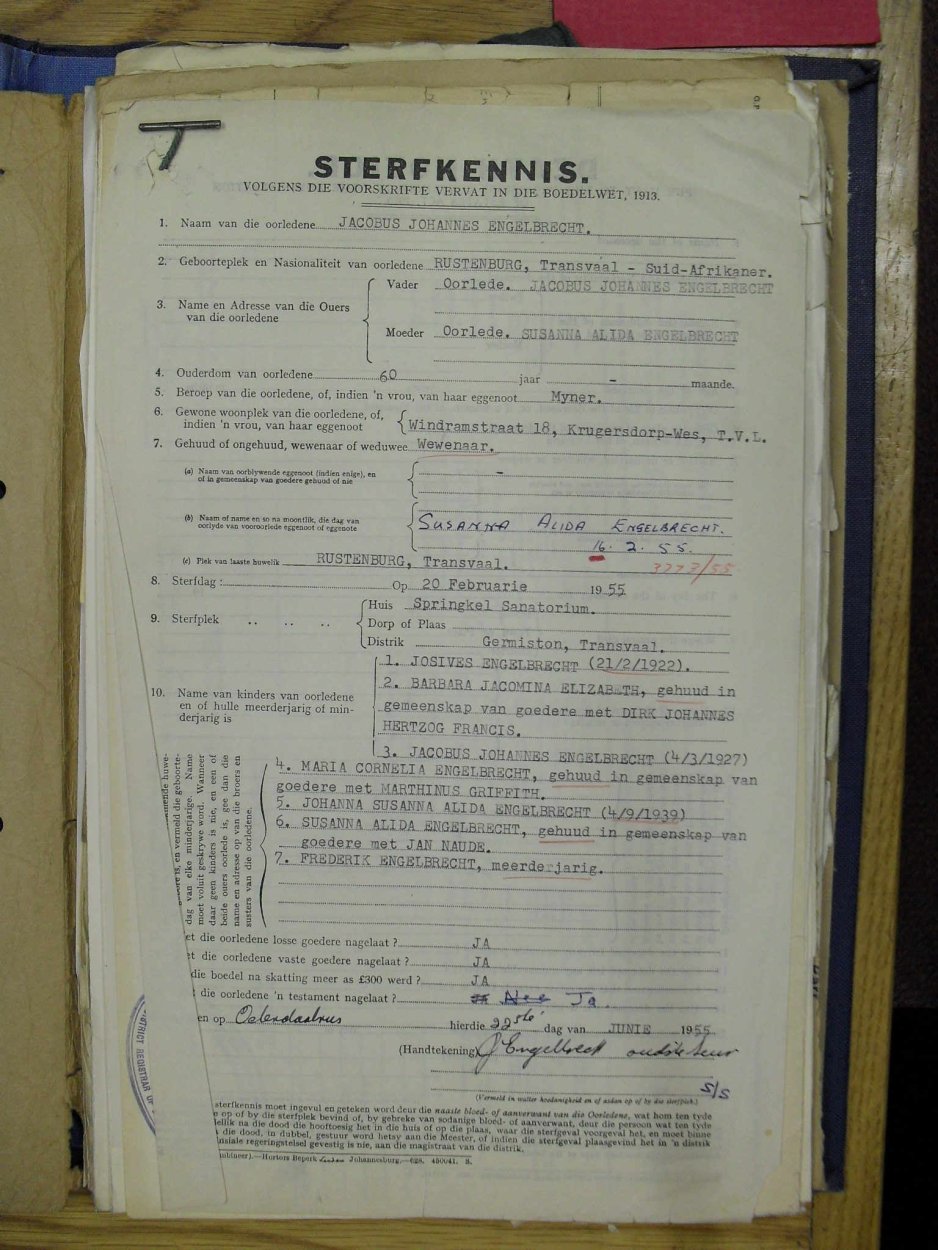 STERFKENNIS.
VOLGENS DIE VOORSKRIFTE VERVAT IN DIE BOEDELWET, 1913.
1. Naam van die oorledene JACOBUS JOHANNES ENGELBRECHT.
2. Geboorteplek en Nasionaliteit van oorledene RUSTENBURG, Transvaal - Suid-Afrikaner.
3. Name en Adresse van die Ouers van die oorledene
Vader Oorlede. JACOBUS JOHANNES ENGELBRECHT
Moeder Oorlede. SUSANNA ALIDA ENGELBRECHT
4. Ouderdom van oorledene 60 jaar - maande.
5. Beroep van die oorledene, of, indien 'n vrou, van haar eggenoot Myner.
6. Gewone woonplek van die oorledene, of,
indien 'n vrou, van haar eggenoot Windramstraat 18, Krugersdorp-Wes, T.V.L.
7. Gehuud of ongehuud, wewenaar of weduwee Wewenaar.
(a) Naam van oorblywende eggenoot (indien enige), en
of in gemeenskap van goedere gehuud of nie -
(b) Naam of name en so na moontlik, die dag van
oorlyde van vooroorlede eggenoot of eggenote SUSANNA ALIDA ENGELBRECHT.
16. 2. 55.
(c) Plek van laaste huwelik RUSTENBURG, Transvaal. 3773/55
8. Sterfdag : Op 20 Februarie 1955
9. Sterfplek .. .. ..
Huis Springkel Sanatorium.
Dorp of Plaas
Distrik Germiston, Transvaal.
10. Name van kinders van oorledene
en of hulle meerderjarig of min-
derjarig is
1. JOSIVES ENGELBRECHT (21/2/1922).
2. BARBARA JACOMINA ELIZABETH, gehuud in
gemeenskap van goedere met DIRK JOHANNES
HERTZOG FRANCIS.
3. JACOBUS JOHANNES ENGELBRECHT (4/3/1927)
4. MARIA CORNELIA ENGELBRECHT, gehuud in gemeenskap van
goedere met MARTHINUS GRIFFITH.
5. JOHANNA SUSANNA ALIDA ENGELBRECHT (4/9/1939)
6. SUSANNA ALIDA ENGELBRECHT, gehuud in gemeenskap van
goedere met JAN NAUDE.
7. FREDERIK ENGELBRECHT, meerderjarig.
is, en vermeld die geboorte-
dag van elke minderjarige. Name
moet voluit geskrywe word. Wanneer
daar geen kinders is nie, en een of
beide ouers oorlede is, gee dan die
name en adresse op van die broers en
susters van die oorledene.
et die oorledene losse goedere nagelaat ? JA
t die oorledene vaste goedere nagelaat ? JA
die boedel na skatting meer as £300 werd ? JA
die oorledene 'n testament nagelaat ? Nee Ja.
en op hierdie 22ste dag van JUNIE 1955
(Handtekening) Engelbrecht oudste seun
S/S
(Vermeld in watter hoedanigheid en of asdan op of by die sterfplek.)
sterfkennis moet ingevul en geteken word deur die naaste bloed- of aanverwant van die Oorledene, wat hom ten tyde
op of by die sterfplek bevind of, by gebreke van sodanige bloed- of aanverwant, deur die persoon wat ten tyde
die dood die hooftoesig het in die huis of op die plaas, waar die sterfgeval voorgeval het, en moet binne
die dood, in dubbel, gestuur word hetsy aan die Meester, of indien die sterfgeval plaasgevind het in 'n distrik
regeringstelsel gevestig is nie, aan die magistraat van die distrik.
Hortors Beperk Johannesburg.
DISTRICT REGISTRAR OF